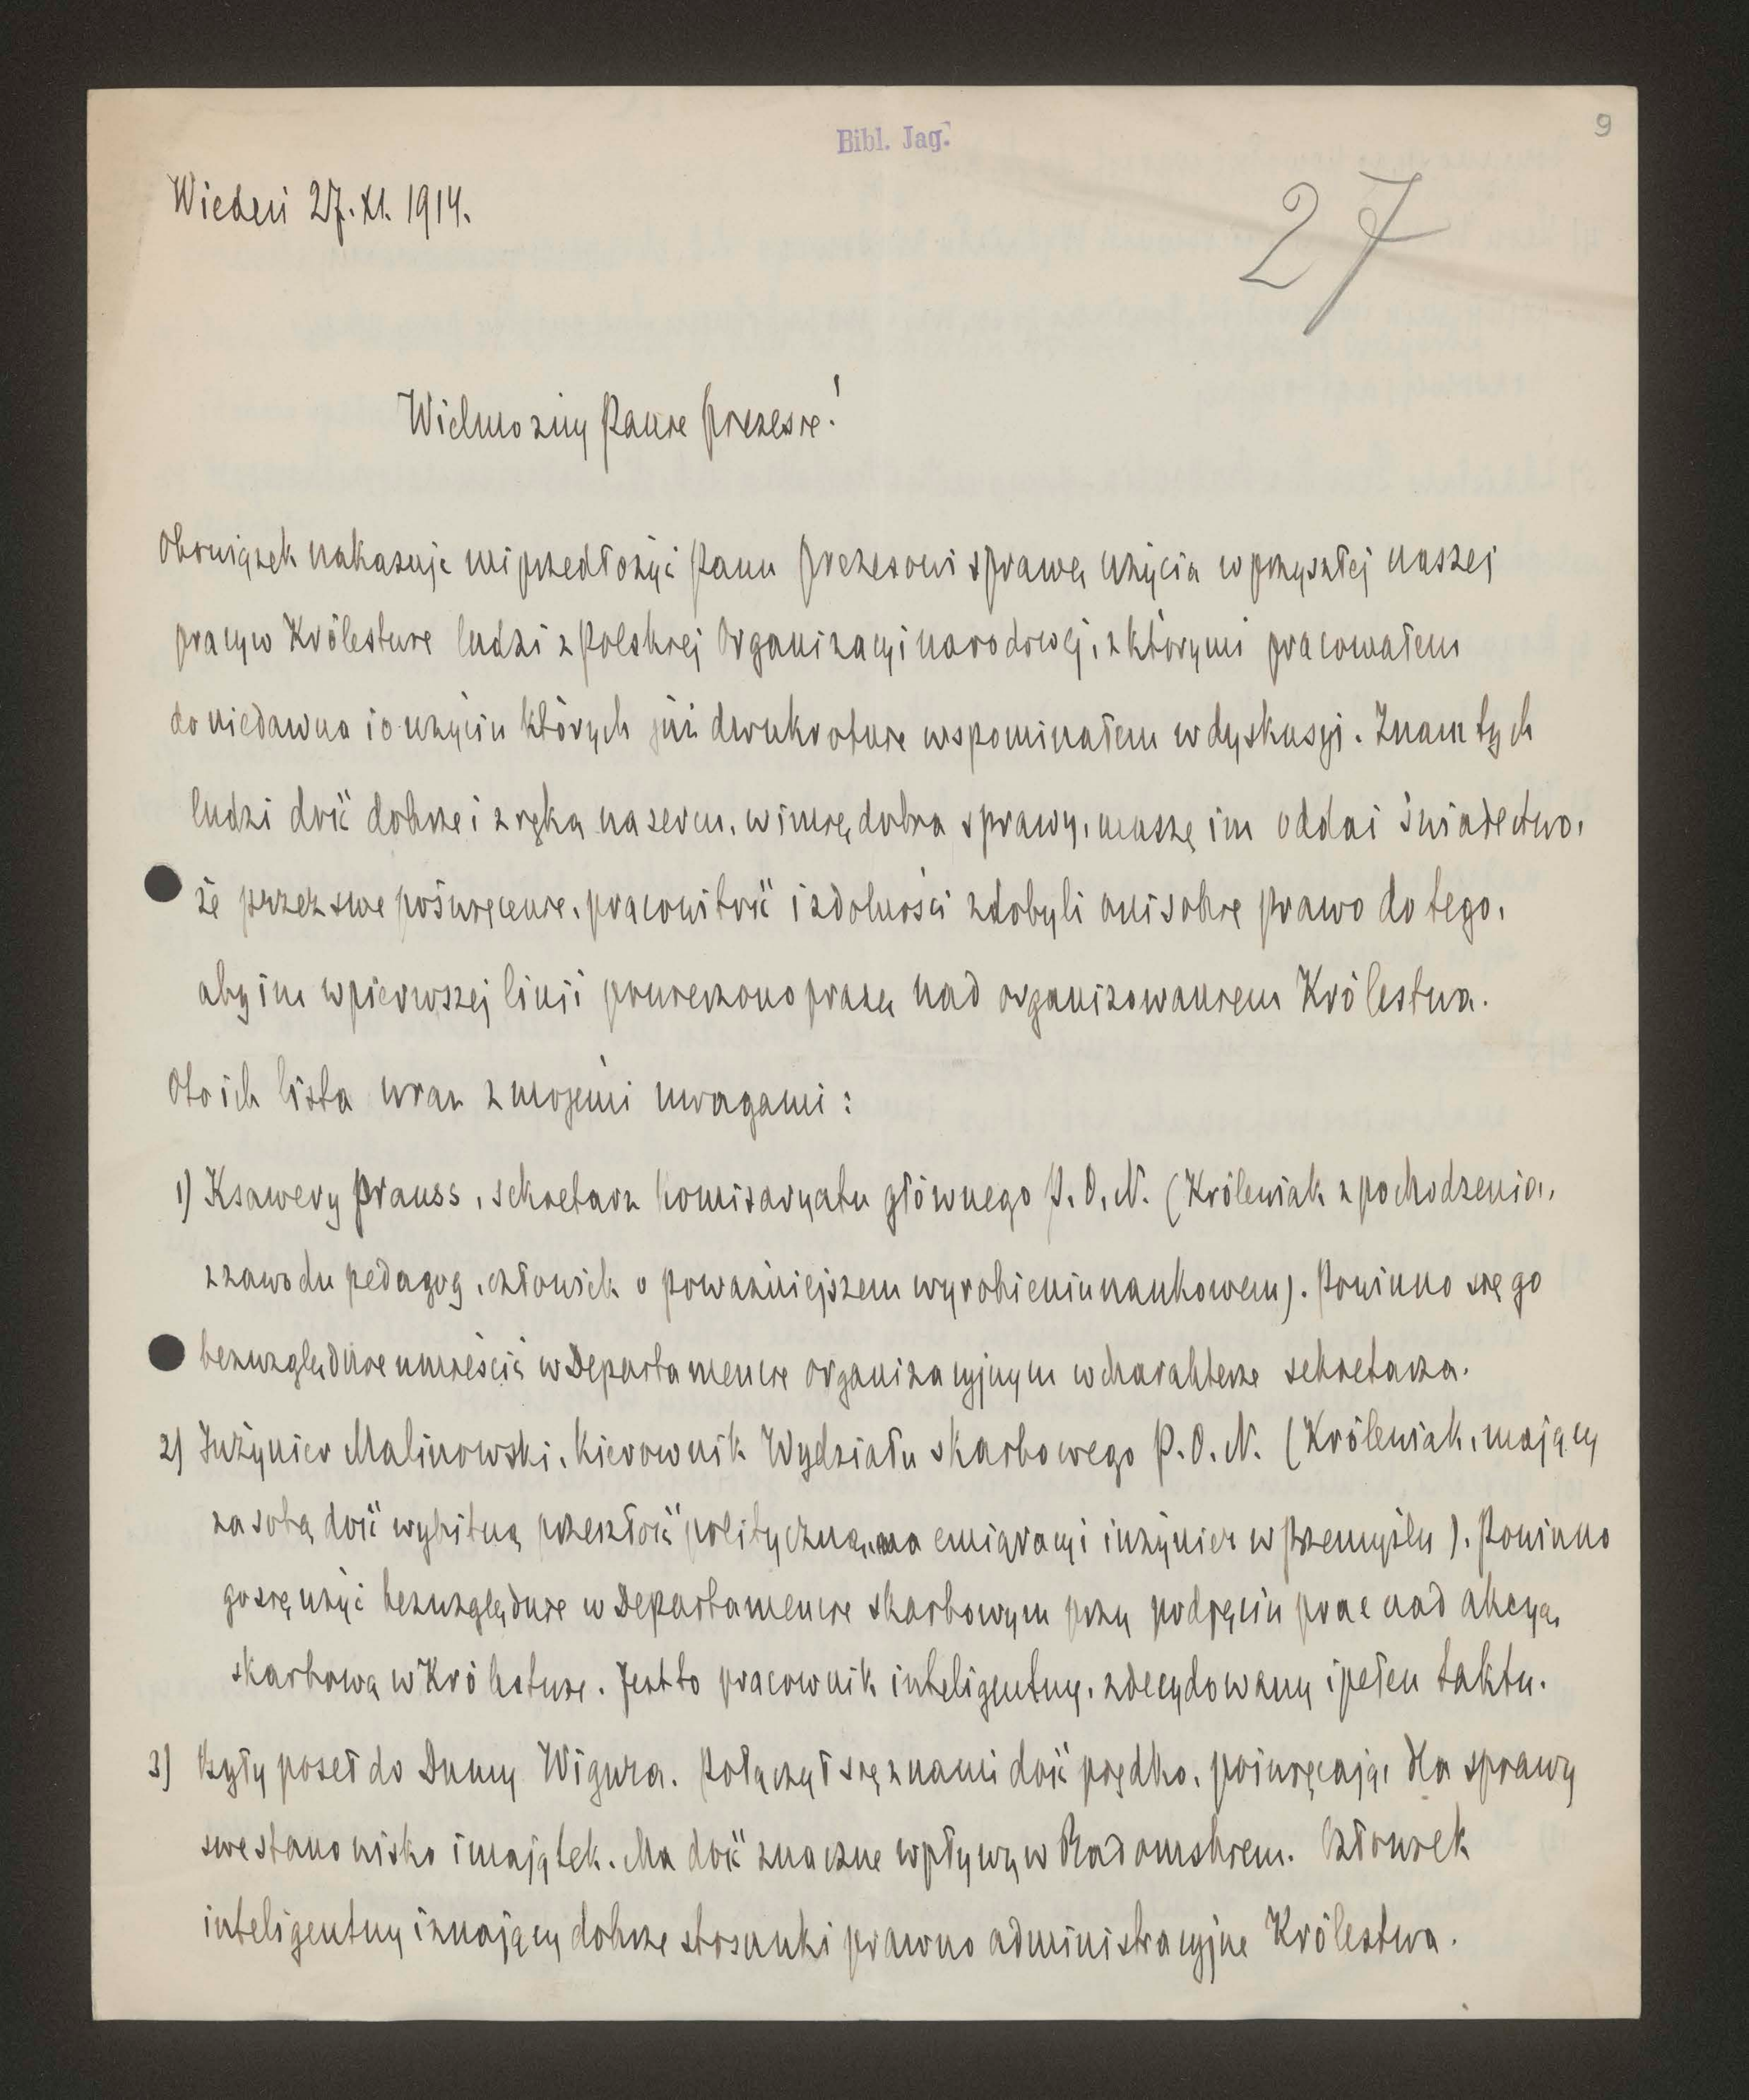 Bibl. Jag.
9
27
Wiedeń 27. XI. 1914.
Wielmożny Panie Prezesie!
Obowiązek nakazuje mi przedłożyć Panu Prezesowi sprawę użycia w przyszłej naszej
pracy w Królestwie ludzi z Polskiej Organizacyi narodowej, z którymi pracowałem
do niedawna i o użyciu których już dwukrotnie wspominałem w dyskusyi. Znam tych
ludzi dość dobrze i z ręką na sercu, w imię dobra sprawy, muszę im oddać świadectwo,
że przez swe poświęcenie, pracowitość i zdolności zdobyli oni sobie prawo do tego,
aby im w pierwszej linii powierzono pracę nad organizowaniem Królestwa.
Oto ich lista wraz z mojemi uwagami:
1) Ksawery Prauss, sekretarz Komisaryatu głównego P. O. N. (Królewiak z pochodzenia,
z zawodu pedagog, człowiek o poważniejszem wyrobieniu naukowem). Powinno się go
bezwzględnie umieścić w Departamencie organizacyjnym w charakterze sekretarza.
2) Inżynier Malinowski, kierownik Wydziału skarbowego P. O. N. (Królewiak, mający
za sobą dość wybitną przeszłość polityczną, na emigracyi inżynier w Przemyślu). Powinno
go się użyć bezwzględnie w Departamencie skarbowym przy podjęciu prac nad akcyą
skarbową w Królestwie. Jest to pracownik inteligentny, zdecydowany i pełen taktu.
3) Były poseł do Dumy Wigura. Połączył się z nami dość prędko, poświęcając dla sprawy
swe stanowisko i majątek. Ma dość znaczne wpływy w Radomskiem. Człowiek
inteligentny i znający dobrze stosunki prawno administracyjne Królestwa.